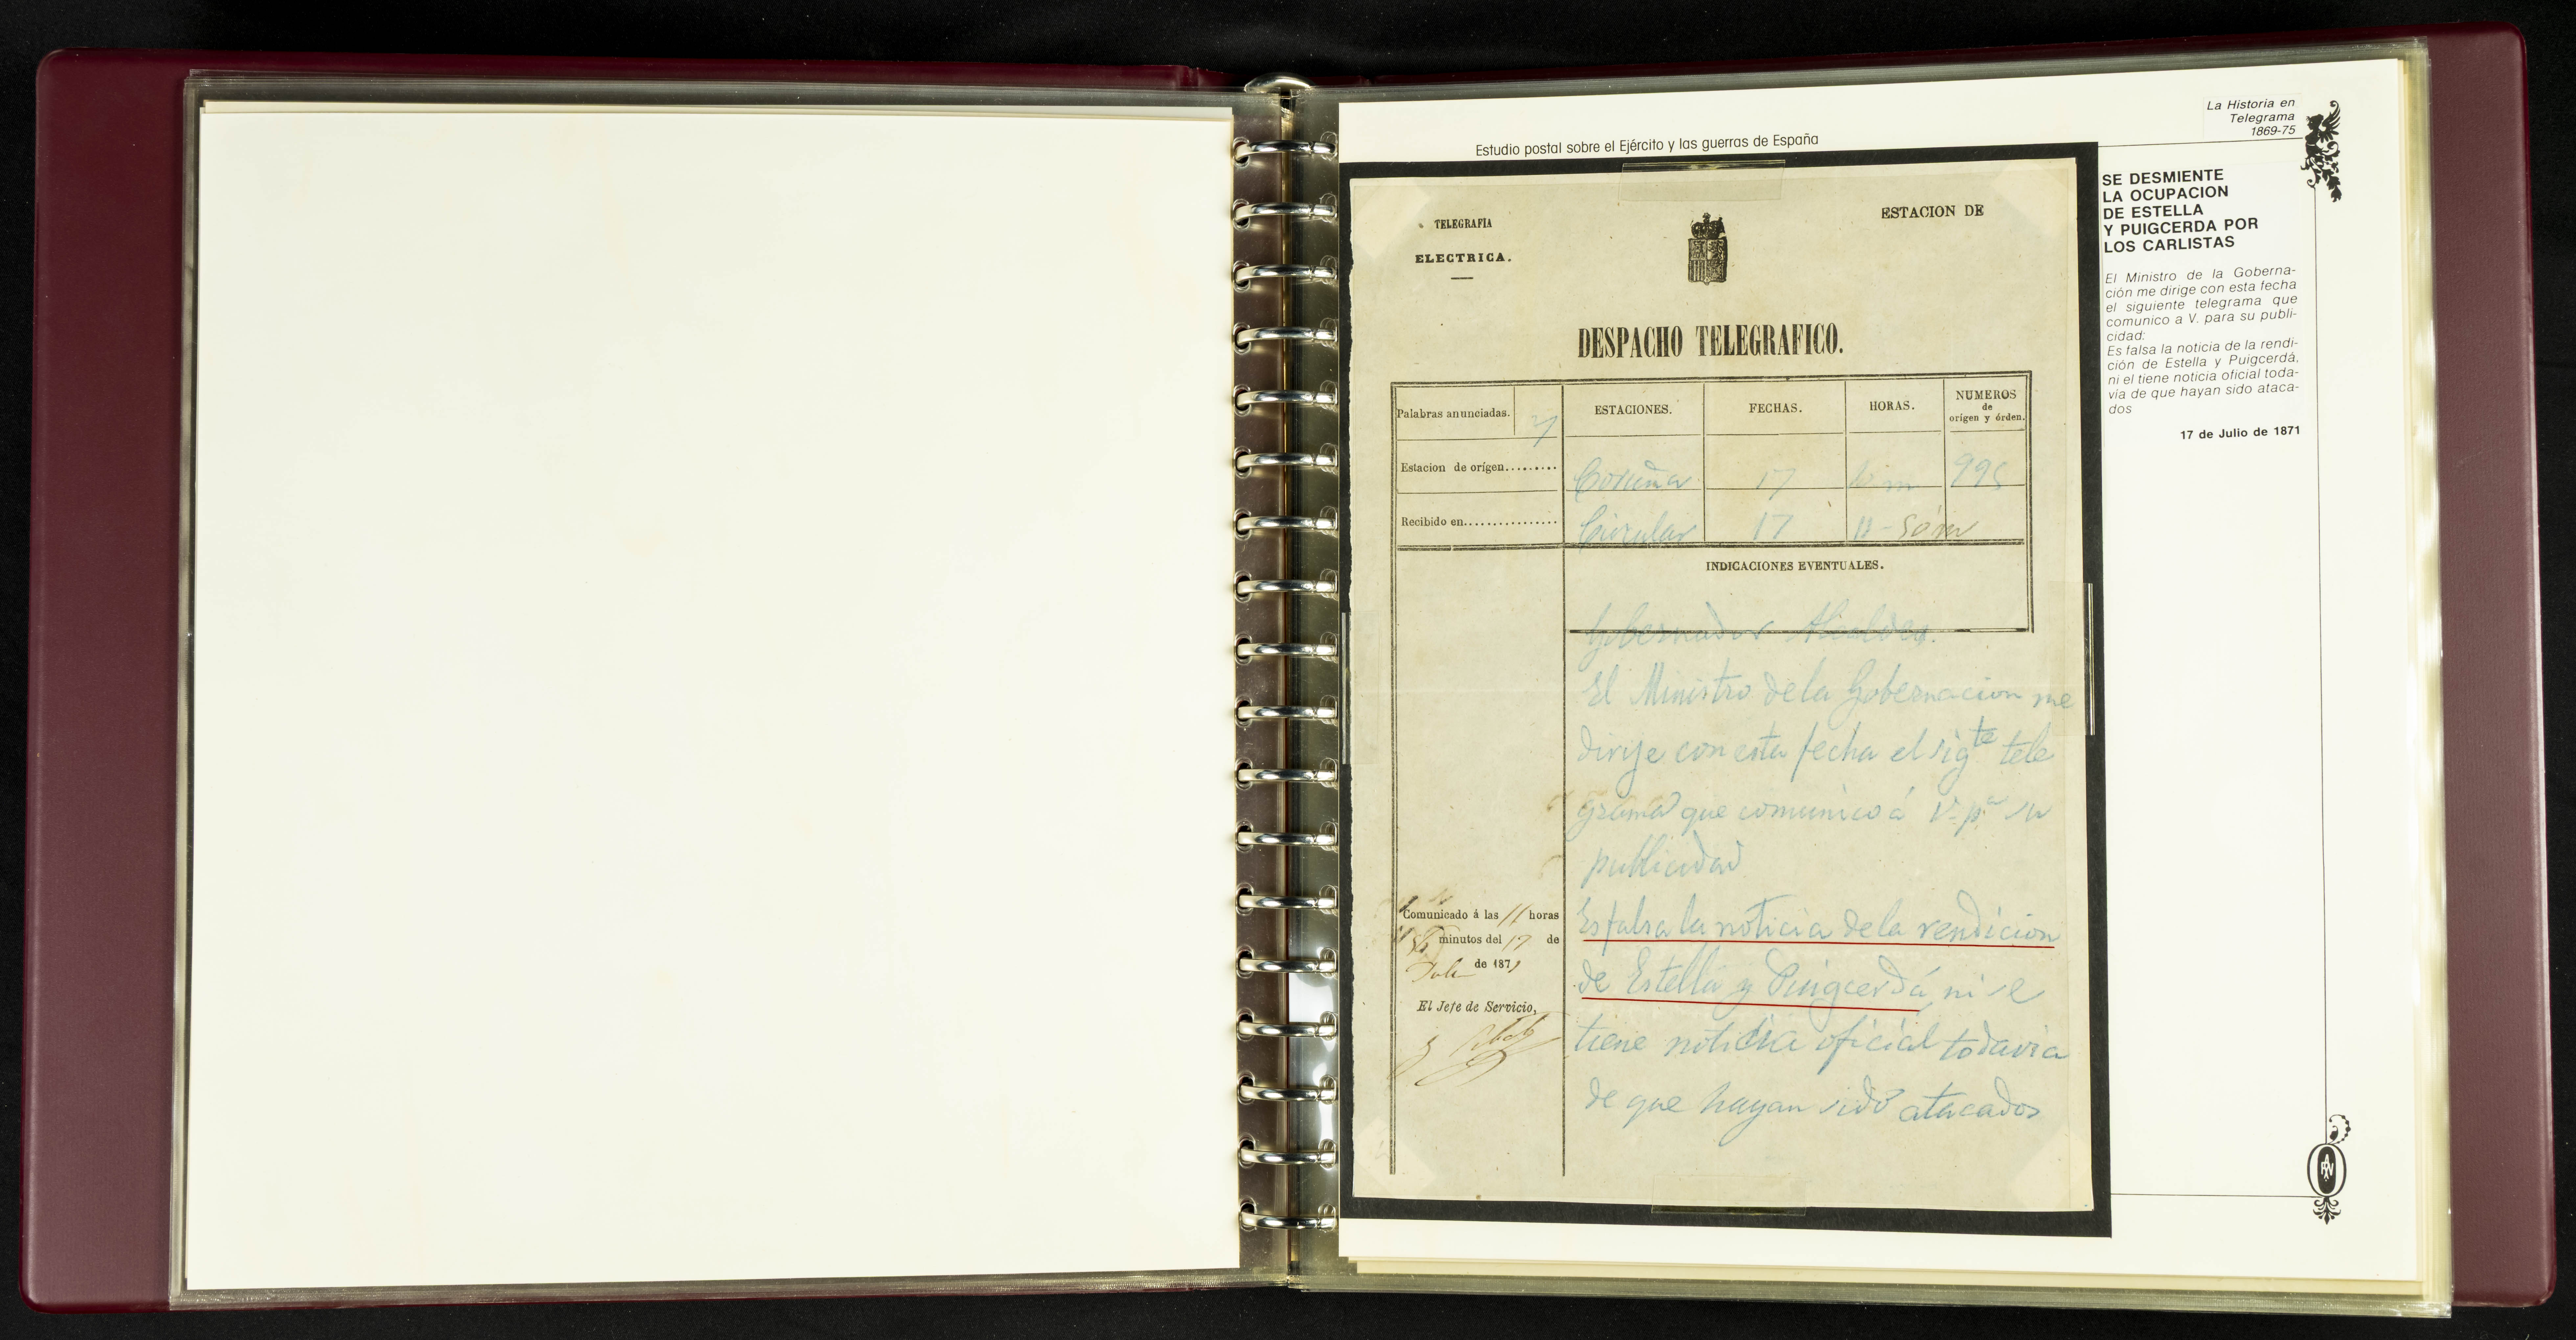 La Historia en
Telegrama
1869-75
Estudio postal sobre el Ejército y las guerras de España
SE DESMIENTE
LA OCUPACION
DE ESTELLA
Y PUIGCERDA POR
LOS CARLISTAS
El Ministro de la Goberna-
ción me dirige con esta fecha
el siguiente telegrama que
comunico a V. para su publi-
cidad:
Es falsa la noticia de la rendi-
ción de Estella y Puigcerdá,
ni el tiene noticia oficial toda-
vía de que hayan sido ataca-
dos
17 de Julio de 1871
TELEGRAFIA
ELECTRICA.
ESTACION DE
DESPACHO TELEGRAFICO.
Palabras anunciadas.
ESTACIONES.
FECHAS.
HORAS.
NUMEROS
de
orígen y órden.
Estacion de orígen.........
Coruña
17
995
Recibido en................
Circular
17
11-50m
INDICACIONES EVENTUALES.
Gobernador Alcaldes.
El Ministro de la Gobernacion me
dirije con esta fecha el sigte tele
grama que comunico á V. pa su
publicidad
Es falsa la noticia de la rendicion
de Estella y Puigcerdá ni se
tiene noticia oficial todavia
de que hayan sido atacados
Comunicado á las 11 horas
minutos del 17 de
de 187
El Jefe de Servicio,